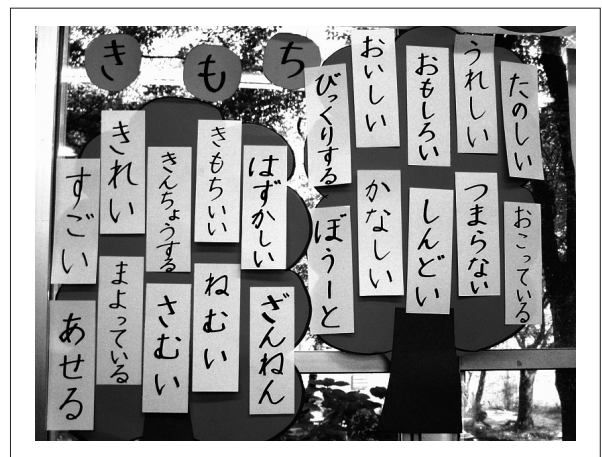 きもち
たのしい
うれしい
おもしろい
おいしい
びっくりする
おこっている
つまらない
しんどい
かなしい
ぼうーと
はずかしい
きもちいい
きんちょうする
きれい
すごい
ざんねん
ねむい
さむい
まよっている
あせる